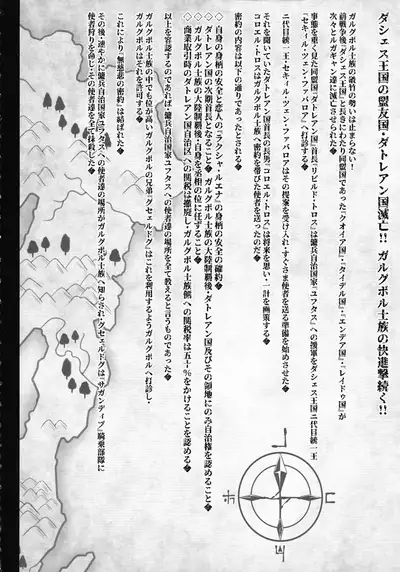 ダシェス王国の盟友国・ダトレアン国滅亡!! ガルグボル士族の快進撃続く!!
ガルグボル士族の破竹の勢いは止まらない!
前戦争後「ダシェス王国」と長きにわたり同盟国であった「クオイア国」・「タイデル国」・「エンデア国」・「レイドゥ国」が
次々とルガギャン達に滅亡させられた◆
事態を重く見た同盟国「ダトレアン国」首長「リビルド・トロス」は傭兵自治国家「ユフタス」への援軍をダシェス王国二代目統一王
「セキイル・ツェン・ファバロア」へ打診◆
二代目統一王・セキイル・ツェン・ファバロアはその提案を受け入れ・すぐさま使者を送る準備を始めさせた◆
それを聞いていたダトレアン国首長の長男「コロエル・トロス」は将来を思い・一計を画策する◆
コロエル・トロスはガルグボル士族へ密約を帯びた使者を送ったのだ◆
密約の内容は以下の通りであったとされる◆
◇自身の身柄の安全と恋人の「ラクシャ・ルエナ」の身柄の安全の確約◆
◇ダトレアン国の次期首長となること◆
◇ガルグボル士族の大陸制覇後・ダトレアン国及びその領地にのみ自治権を認めること◆
◇ガルグボル士族の大陸制覇後・自身を丞相の位に任ずること◆
◇商業取引時のダトレアン国自治区への関税は撤廃し・ガルグボル士族側への関税率は五十%をかけることを認める◆
以上を容認するのであれば・傭兵自治国家ユフタスへの使者達の場所を全て教えると言うものであった◆
ガルグボル士族の中でも位が高いガルグボルの兄弟「グセェルドグ」はこれを利用するようガルグボルへ打診し・
ガルグボルはそれを許可する◆
これにより「無慈悲の密約」は結ばれた◆
その後・速やかに傭兵自治国家ユフタスへの使者達の場所がガルグボル士族へ知らされ・グセェルドグは「サガンディブ」騎乗部隊に
使者狩りを命じ・その使者達を全て抹殺した◆